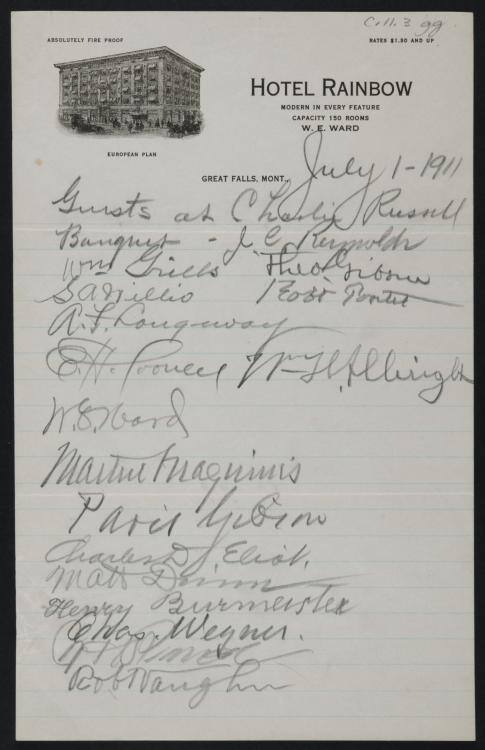 Coll. 3 gg
ABSOLUTELY FIRE PROOF
RATES $1.50 AND UP
HOTEL RAINBOW
MODERN IN EVERY FEATURE
CAPACITY 150 ROOMS
W. E. WARD
EUROPEAN PLAN
GREAT FALLS, MONT., July 1-1911
Guests at Charlie Russell
Banquet - J. C. Reynolds
Wm Grills Theo Gibson
Robt
A. F. Longeway
E. H. Cooney
W. E. Ward
Martin Maginnis
Paris Gibson
Charles D. Eliot.
Matt Dunn
Henry Burmeister
Chas. Wegner.
Rob Vaughn